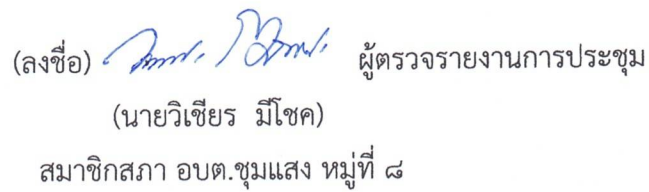 (ลงชื่อ) ผู้ตรวจรายงานการประชุม
(นายวิเชียร มีโชค)
สมาชิกสภา อบต.ชุมแสง หมู่ที่ ๘